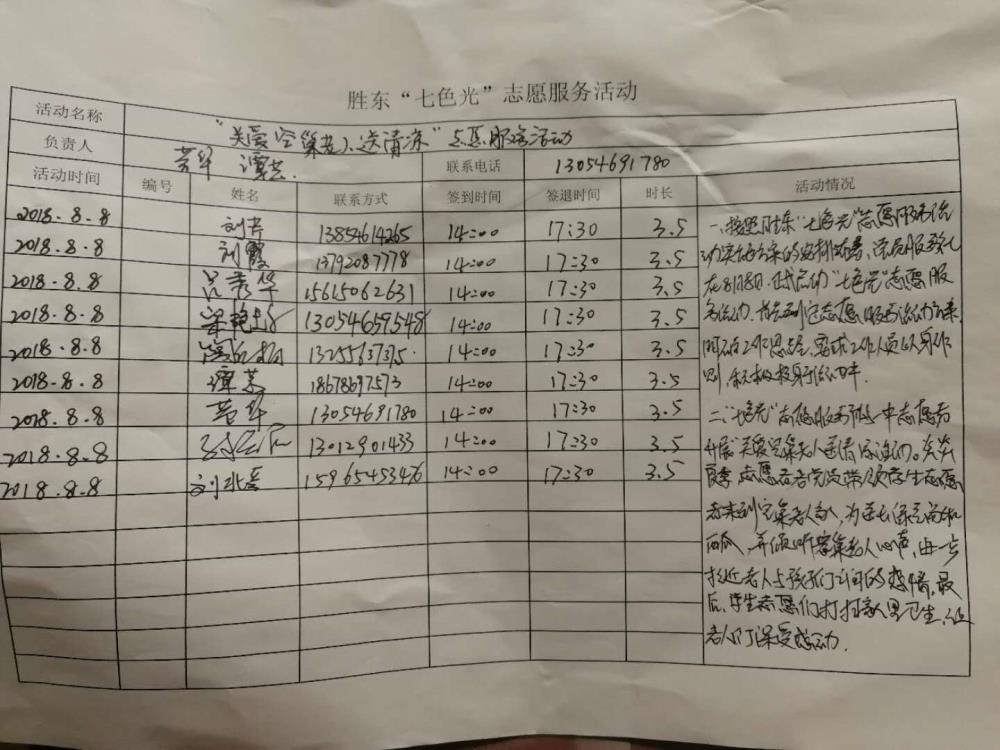 胜东“七色光”志愿服务活动
活动名称 “关爱空巢老人、送清凉”志愿服务活动
负责人 谭芸 联系电话 13054691780
活动时间 编号 姓名 联系方式 签到时间 签退时间 时长 活动情况
2018.8.8 刘芹 13854614265 14:00 17:30 3.5
2018.8.8 刘霞 13792087778 14:00 17:30 3.5
2018.8.8 吕秀华 15615062631 14:00 17:30 3.5
2018.8.8 13054659548 14:00 17:30 3.5
2018.8.8 13255637375 14:00 17:30 3.5
2018.8.8 谭芸 18678697573 14:00 17:30 3.5
2018.8.8 13054681780 14:00 17:30 3.5
2018.8.8 13012901433 14:00 17:30 3.5
2018.8.8 15965453476 14:00 17:30 3.5
一、按照胜东“七色光”志愿服务活
动实施方案的安排部署
在8月8日正式启动“七色光”志愿服
务活动
工作人员以身作
则,积极投身活动中.
二、“七色光”志愿服务 中志愿者
开展关爱空巢老人送清凉活动。炎炎
夏季,志愿者 党员带领学生志愿
者来到空巢老人家,为
西瓜,并倾听空巢老人心声,进一步
拉近老人与孩子们之间的感情,最
后,学生志愿们打扫家里卫生,让
老人们深受感动.